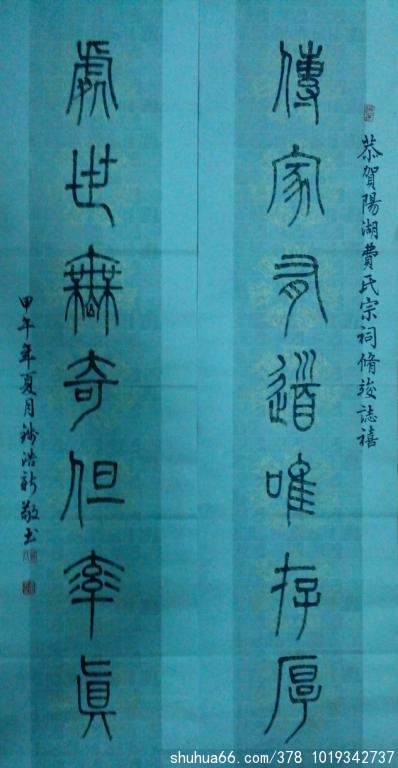 恭賀陽湖費氏宗祠脩竣誌禧
傳家有道唯存厚
處世無奇但率真
甲午年夏月錢浩新敬书
shuhua66.com/378 1019342737